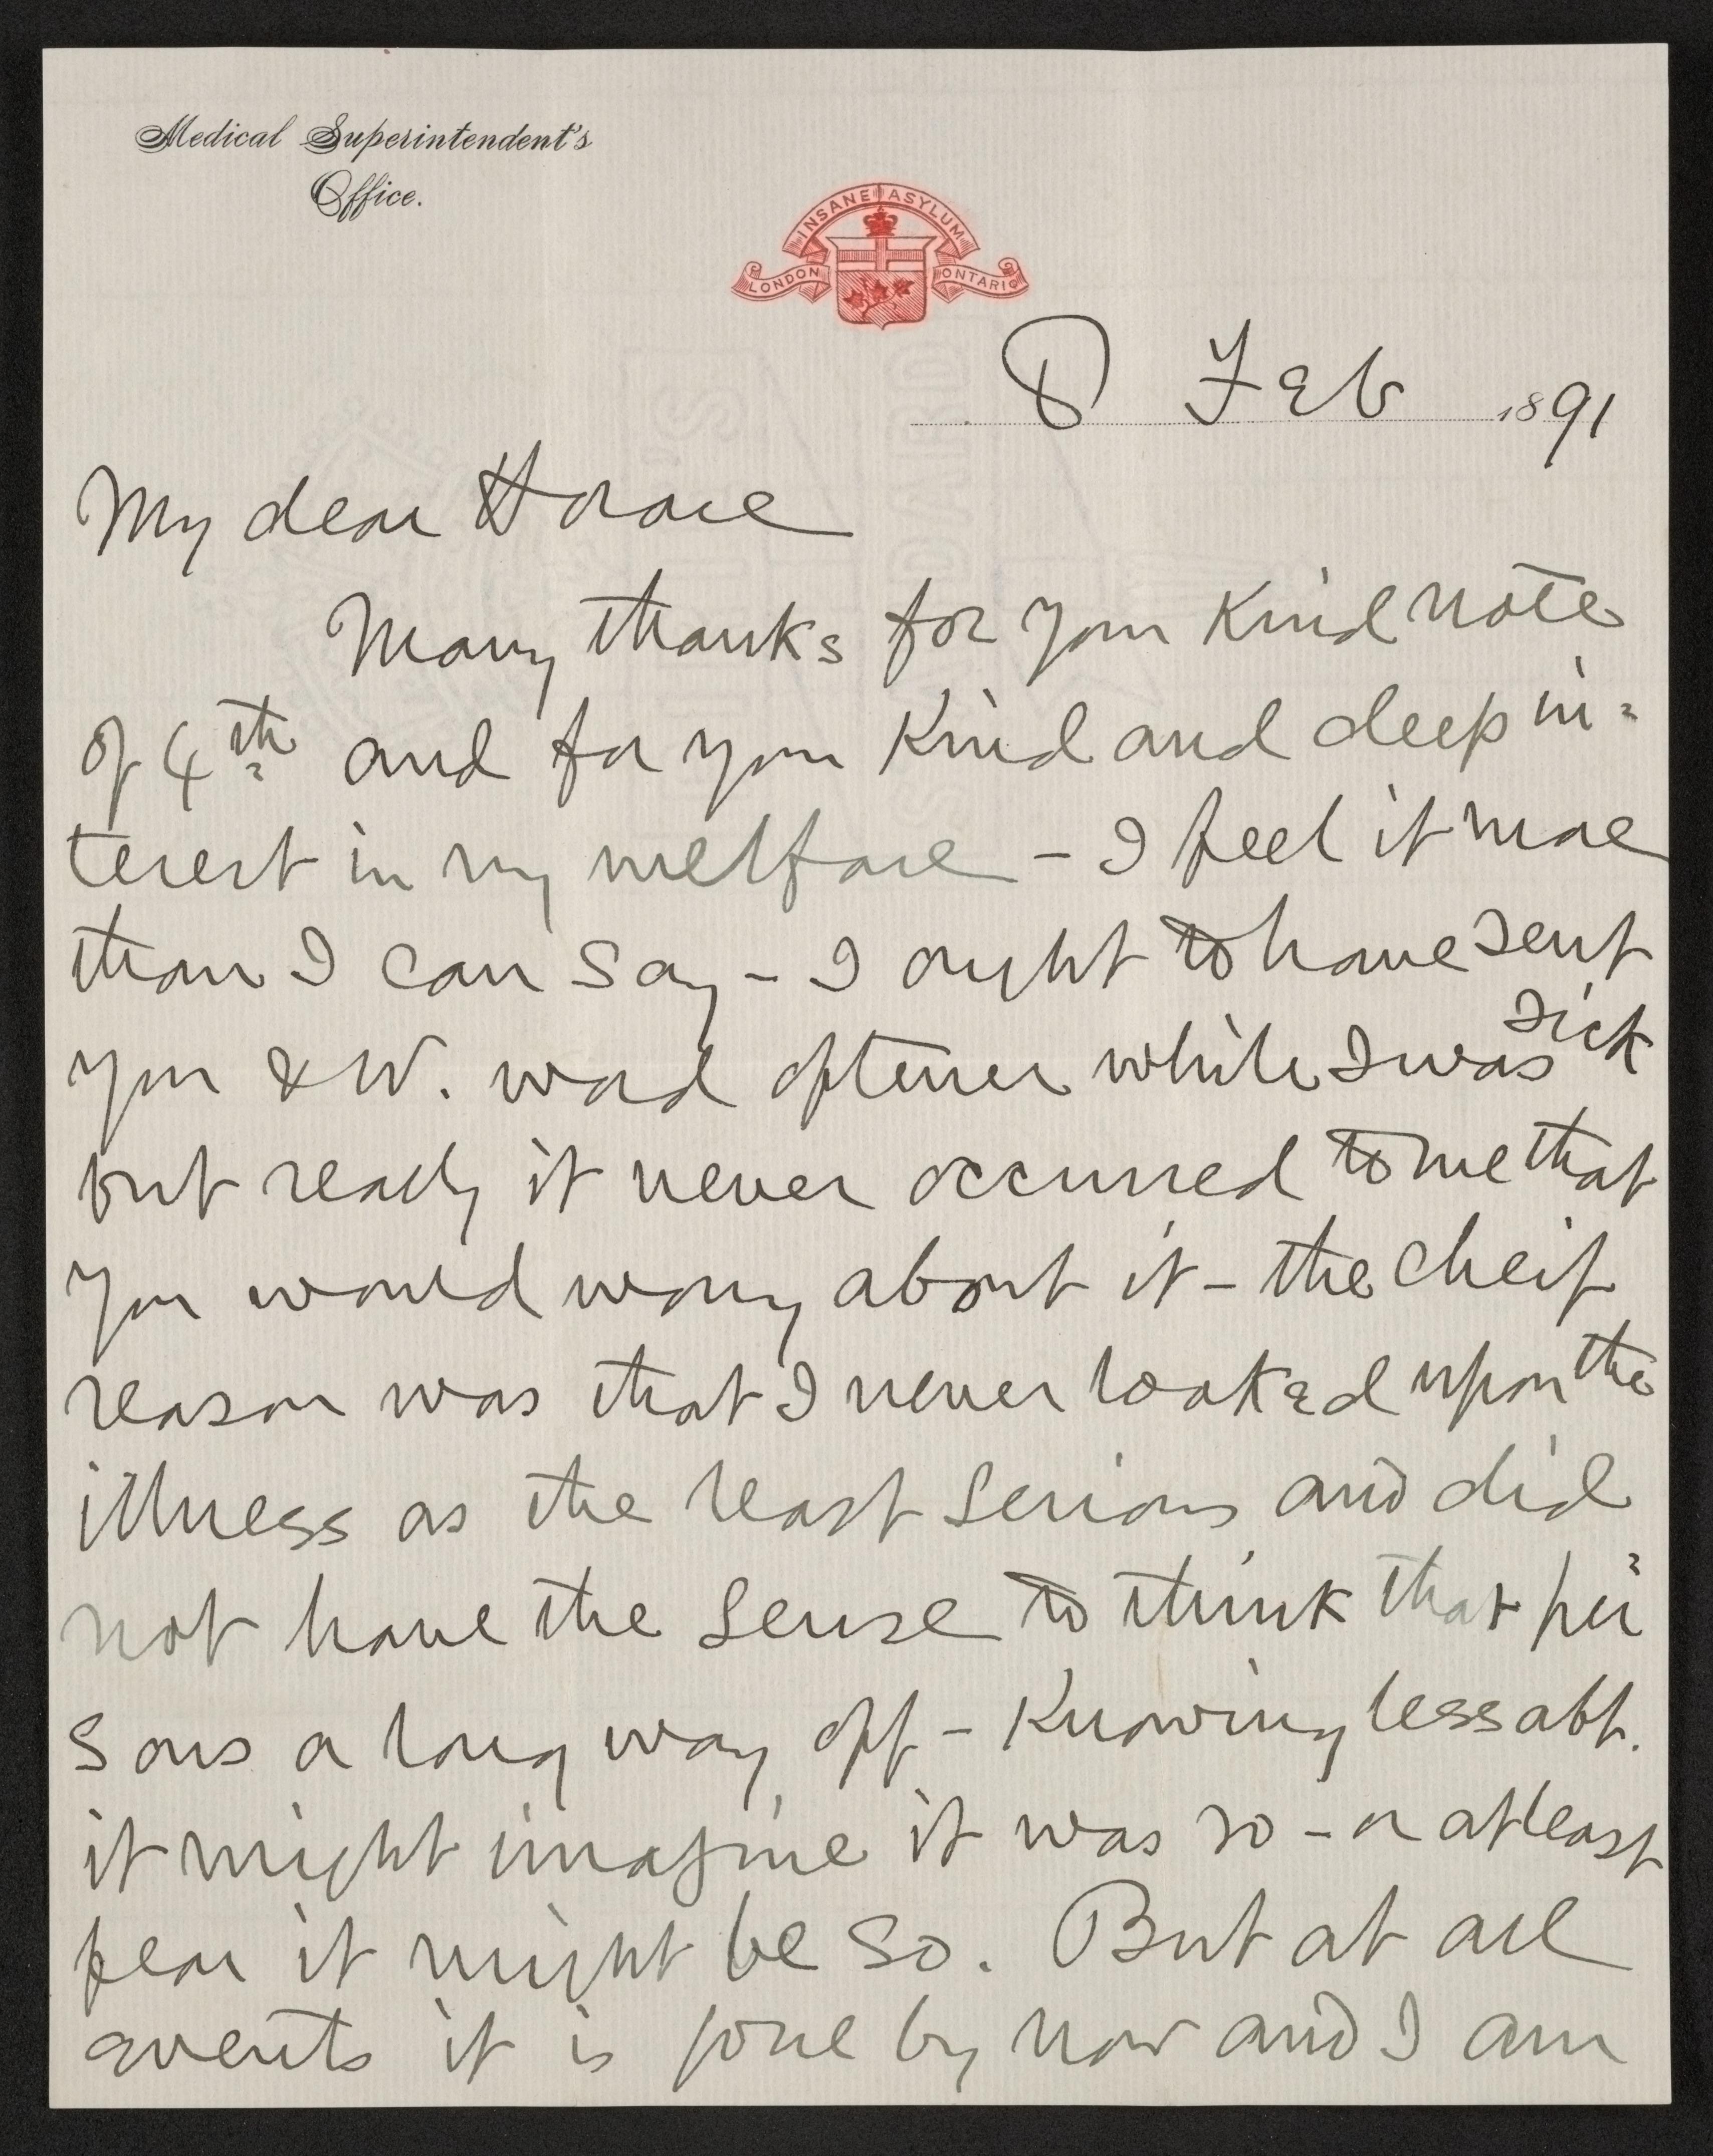 Medical Superintendent's
Office.
INSANE ASYLUM
LONDON ONTARIO
8 Feb 1891
My dear Horace
Many thanks for your kind note
of 4th and for your kind and deep in-
terest in my welfare – I feel it more
than I can say – I ought to have sent
you & W. word oftener while I was sick
but really it never occurred to me that
you would worry about it – the cheif
reason was that I never looked upon the
illness as the least serious and did
not have the sense to think that per-
sons a long way off – knowing less abt.
it might imagine it was so – or at least
fear it might be so. But at all
events it is gone by now and I am